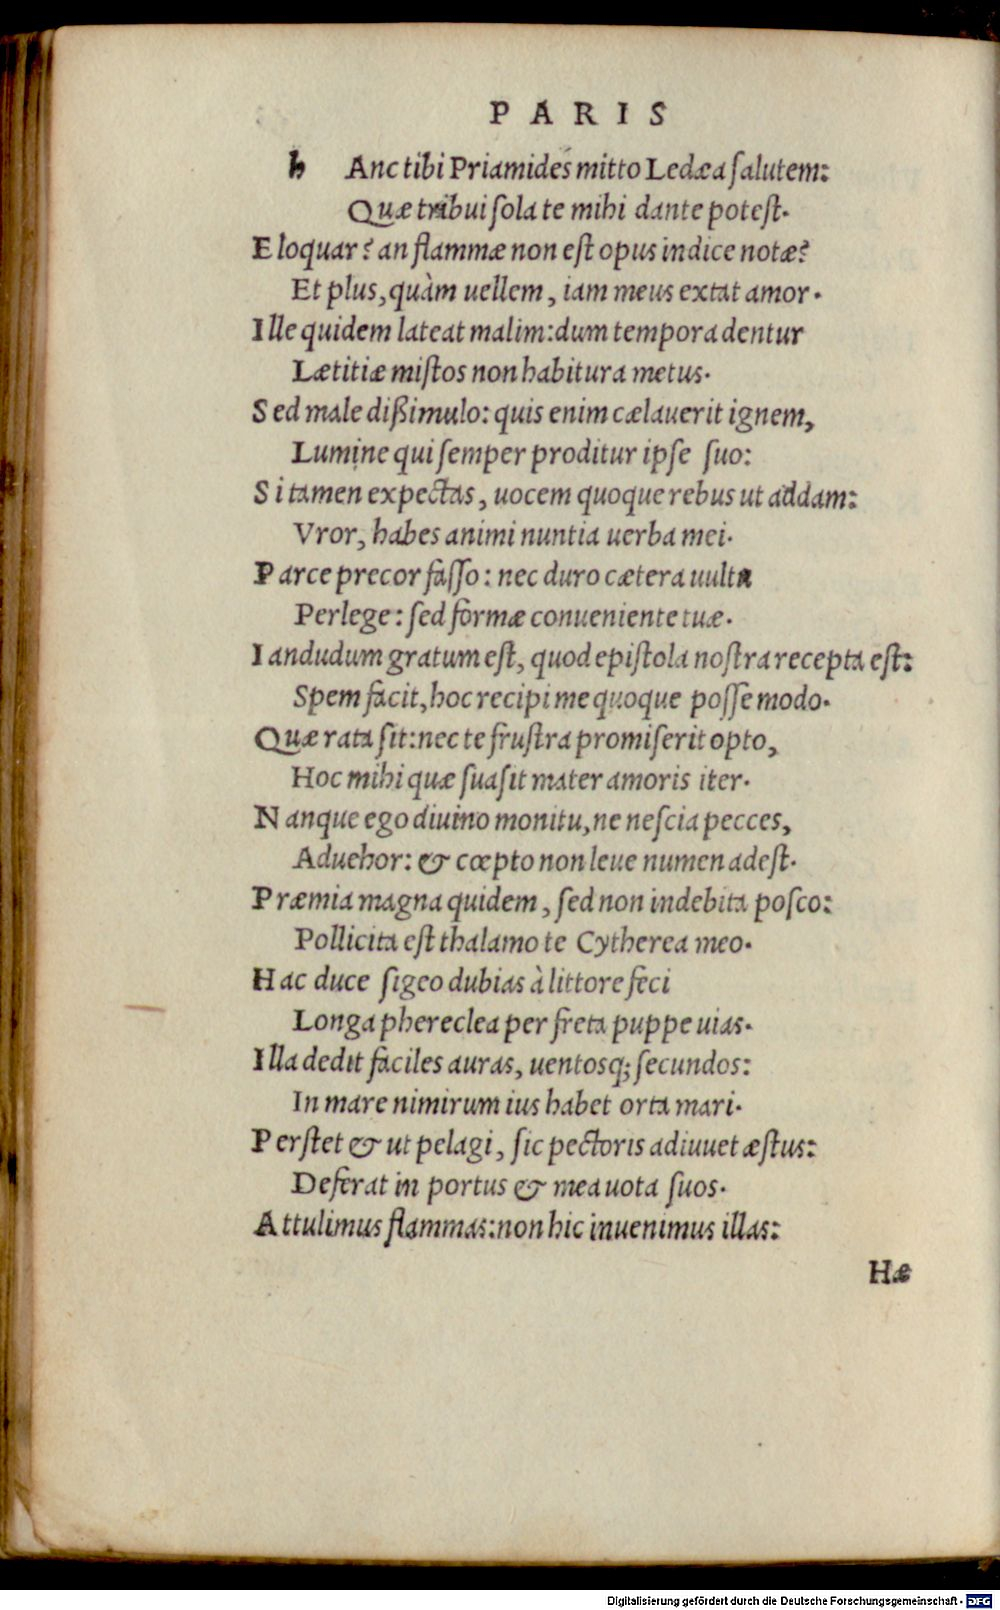 PARIS
h Anc tibi Priamides mitto Ledæa salutem:
Quæ tribui sola te mihi dante potest.
Eloquar? an flammæ non est opus indice notæ?
Et plus, quàm uellem, iam meus extat amor.
Ille quidem lateat malim: dum tempora dentur
Lætitiæ mistos non habitura metus.
Sed male dißimulo: quis enim cælauerit ignem,
Lumine qui semper proditur ipse suo:
Si tamen expectas, uocem quoque rebus ut addam:
Vror, habes animi nuntia uerba mei.
Parce precor fasso: nec duro cætera uulta
Perlege: sed formæ conueniente tuæ.
Iandudum gratum est, quod epistola nostra recepta est:
Spem facit, hoc recipi me quoque posse modo.
Quæ rata sit: nec te frustra promiserit opto,
Hoc mihi quæ suasit mater amoris iter.
Nanque ego diuino monitu, ne nescia pecces,
Aduehor: & cœpto non leue numen adest.
Præmia magna quidem, sed non indebita posco:
Pollicita est thalamo te Cytherea meo.
Hac duce sigeo dubias à littore feci
Longa phereclea per freta puppe uias.
Illa dedit faciles auras, uentosq; secundos:
In mare nimirum ius habet orta mari.
Perstet & ut pelagi, sic pectoris adiuuet æstus:
Deferat in portus & mea uota suos.
Attulimus flammas: non hic inuenimus illas:
Hæ
Digitalisierung gefördert durch die Deutsche Forschungsgemeinschaft - DFG